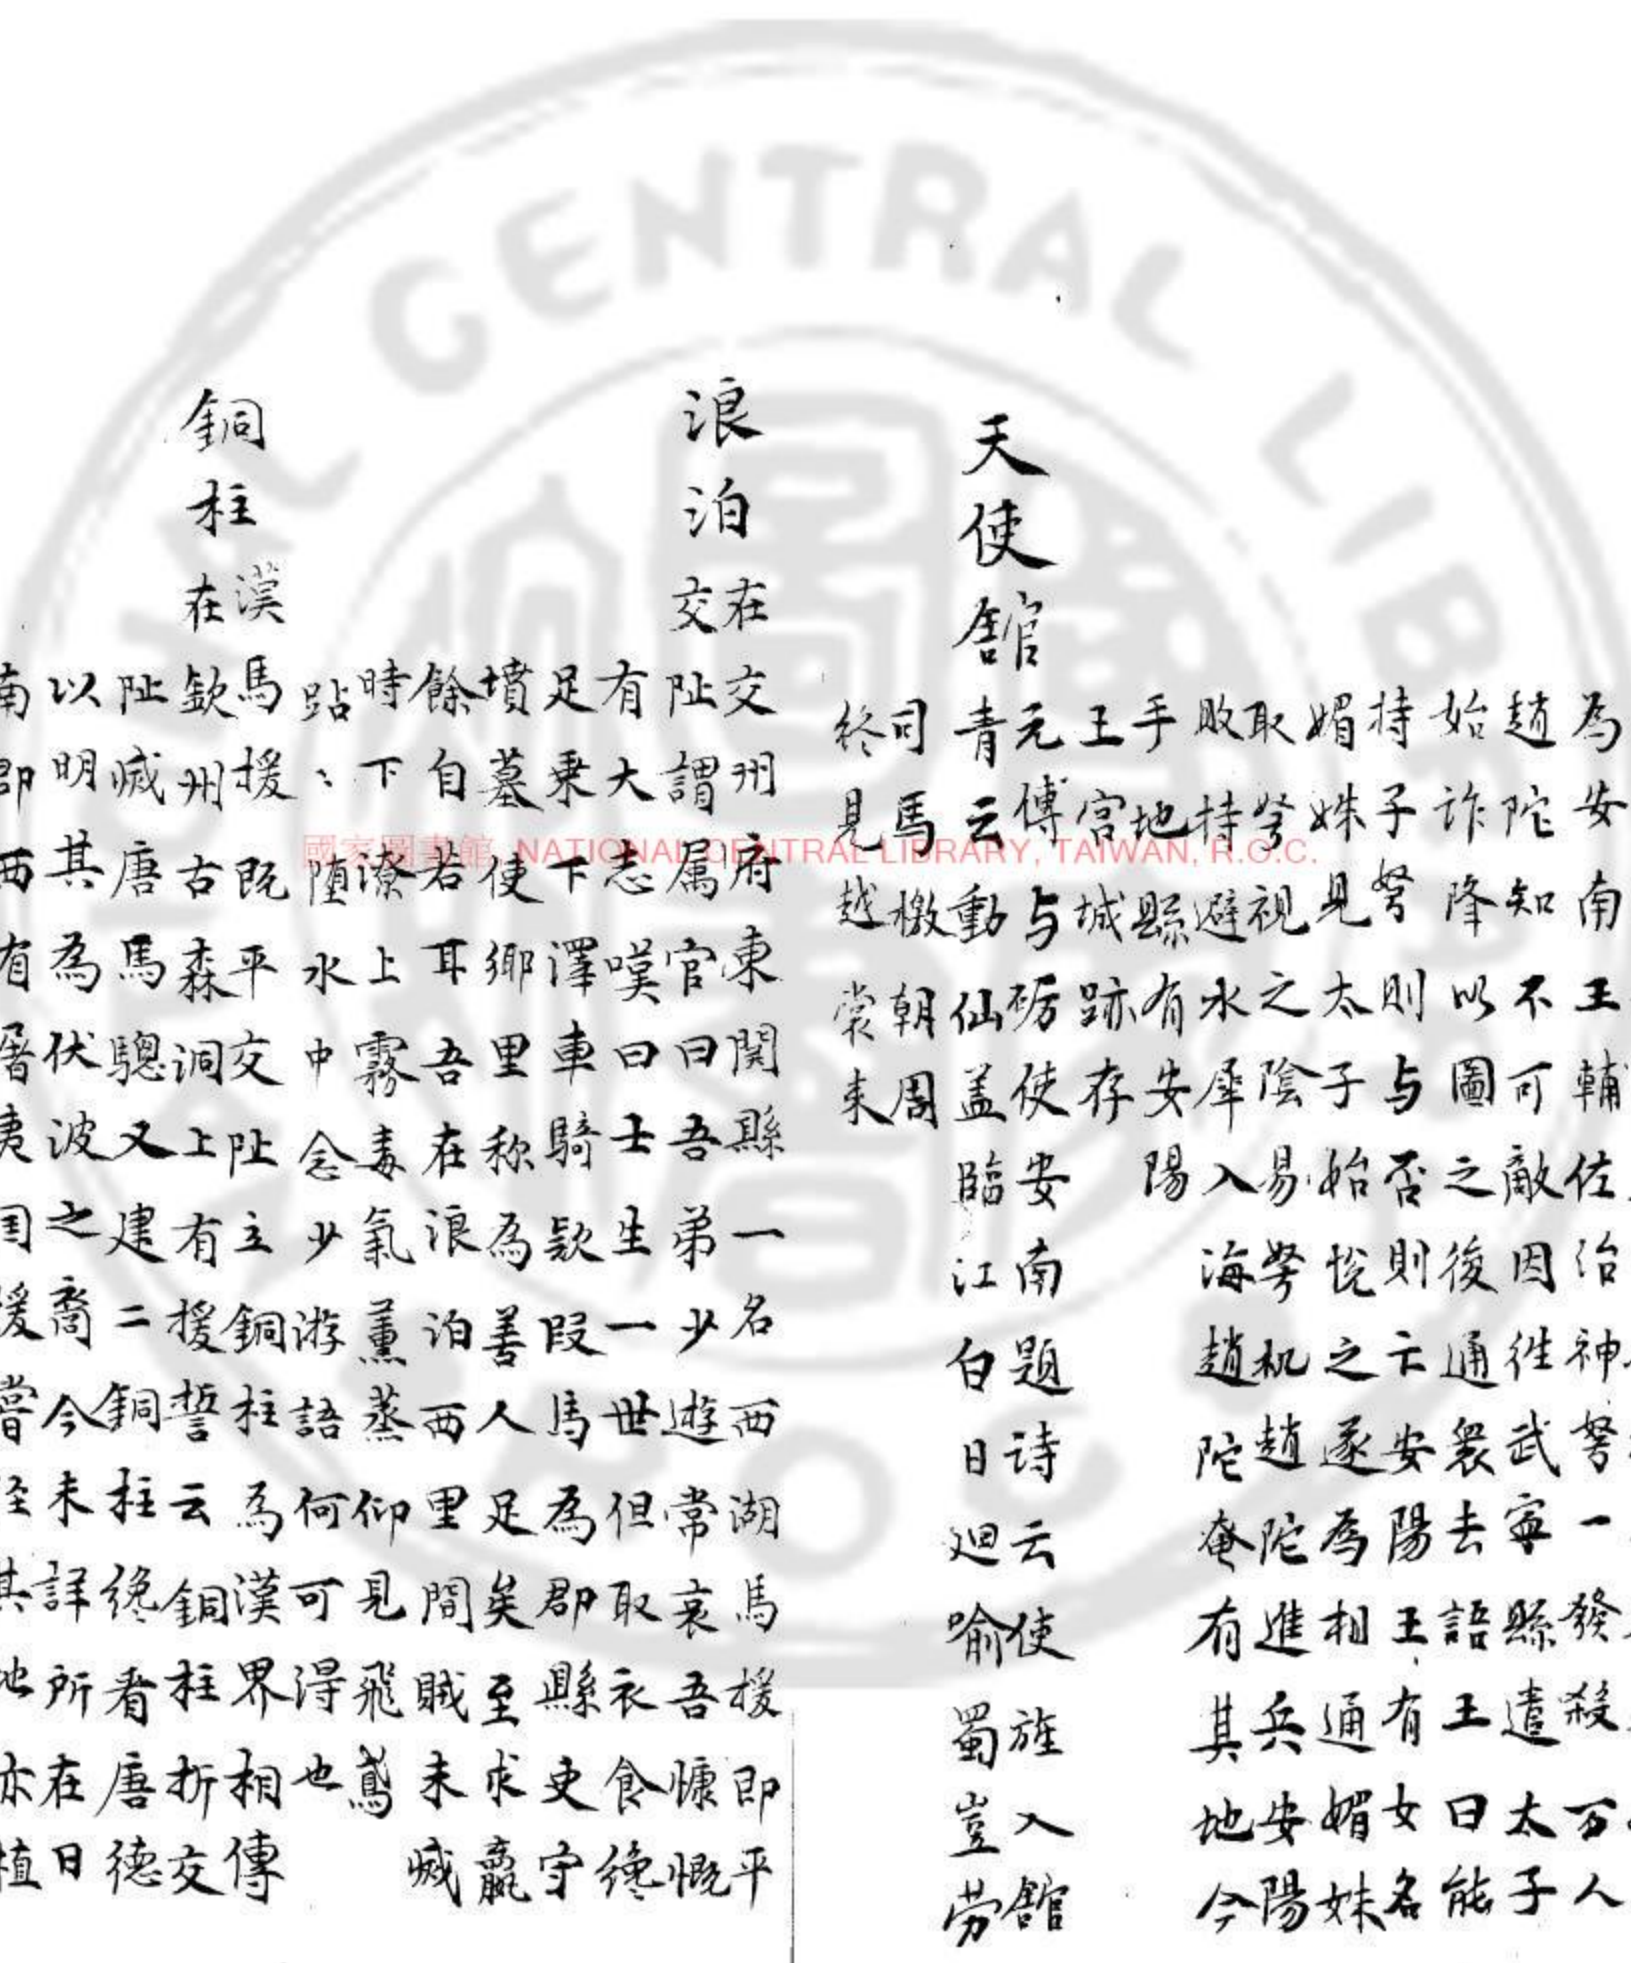 為安南王輔佐治神弩一發殺万人
趙陀知不可敵因徃武寧縣遣太子
始詐降以圖之後通衆去語王曰能
持子弩則与否則亡安陽王有女名
媚姝見太子始悅之遂為相通媚妹
取弩視之陰易弩机趙陀進兵安陽
敗持避水犀入海趙陀奄有其地今
手地縣有安陽
王宮城跡存
天使館
元傅与砺使安南題诗云使旌入館
青云動仙盖臨江白日迴喻蜀豈劳
司馬檄朝周
終見越裳来
浪泊
在交州府東関縣一名西湖馬援即平
交阯謂属官曰吾弟少遊常哀吾慷慨
有大志嘆曰士生一世但取衣食纔
足乗下澤車騎欵段馬為郡縣吏守
墳墓使鄉里称為善人足矣至求嬴
餘自若耳吾在浪泊西里間賊未滅
時下潦上霧毒氣薰蒸仰見飛鳶
跕〻堕水中念少游語何可得也
銅柱
漢馬援既平交阯立銅柱為漢界相傳
在欽州古森洞上有援誓云銅柱折交
阯滅唐馬驄又建二銅柱纔看唐德
以明其為伏波之裔今未詳所在日
南郡西有屠夷国援嘗经其地亦植
國家圖書館 NATIONAL CENTRAL LIBRARY, TAIWAN, R.O.C.
CENTRAL LIBR
ROC